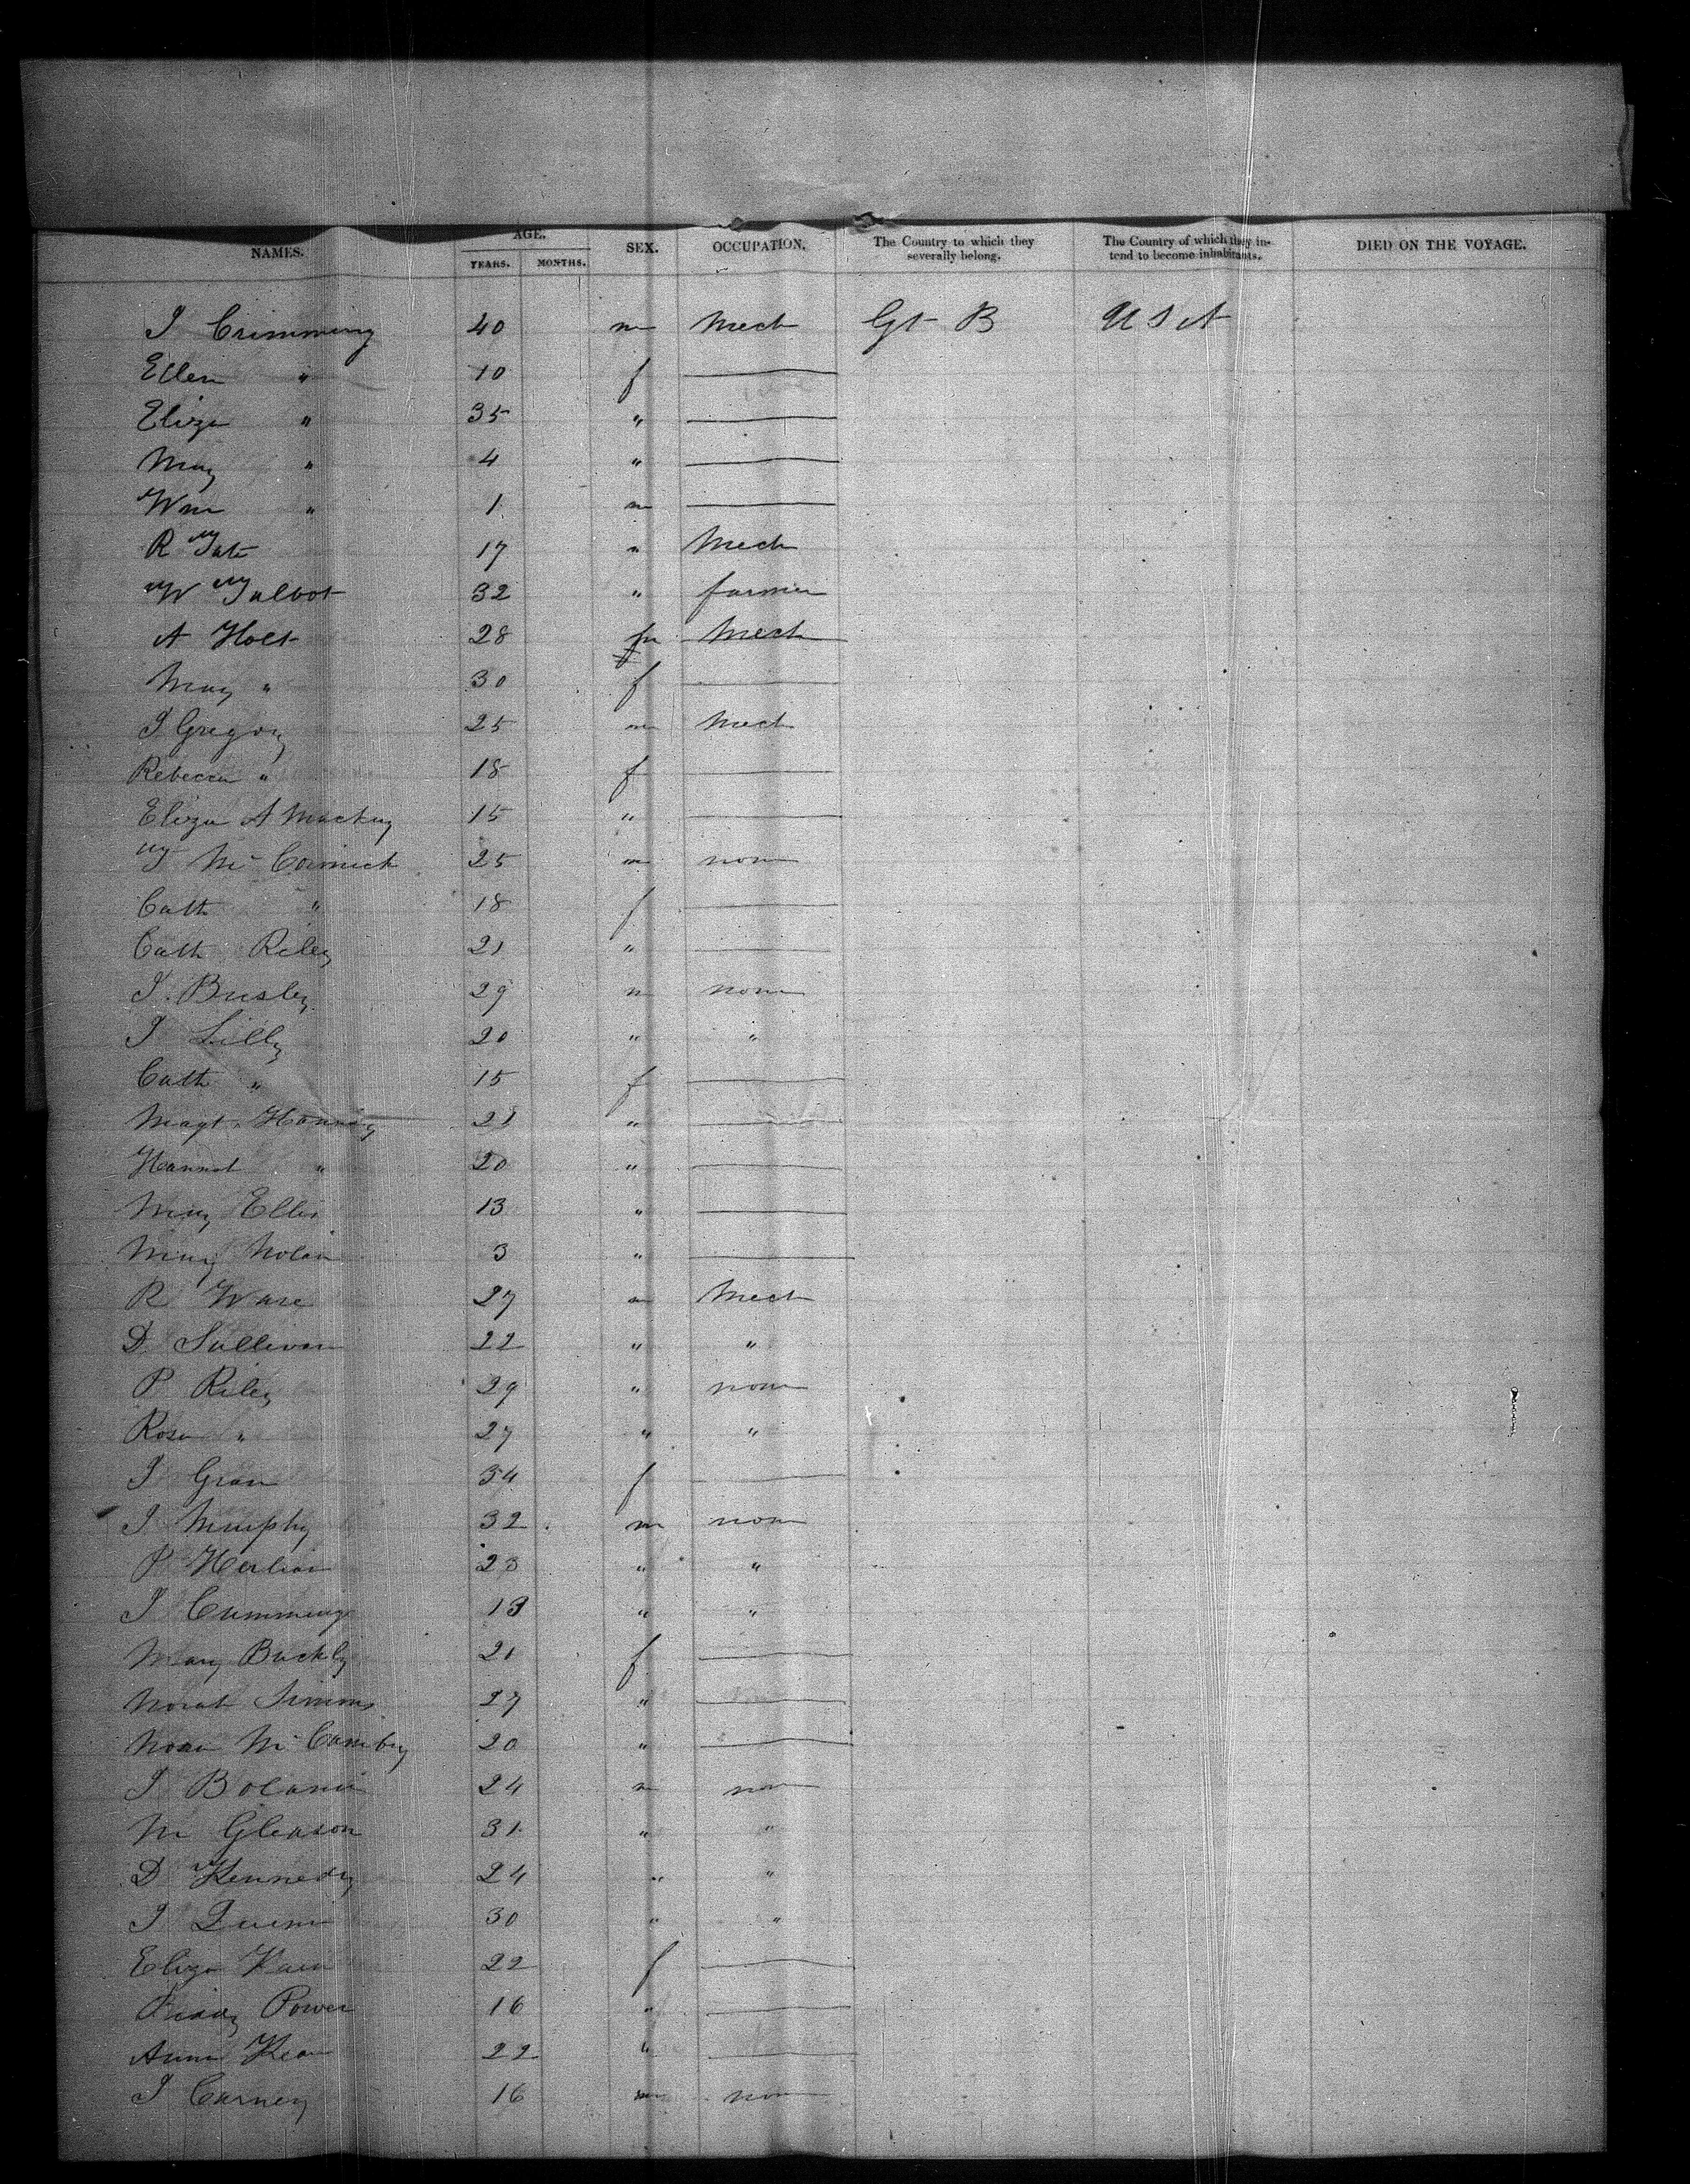 NAMES. AGE. YEARS. MONTHS. SEX. OCCUPATION. The Country to which they severally belong. The Country of which they intend to become inhabitants. DIED ON THE VOYAGE.
J Crimming 40 m Mech Gt B U S A
Ellen " 10 f
Eliza " 35 "
Mary " 4 "
Wm " 1 m
R Tate 17 " Mech
W Talbot 32 " farmer
A Holt 28 m Mech
Mary " 30 f
J Gregory 25 m Mech
Rebecca " 18 f
Eliza A Mackay 15 "
T McCormick 25 m none
Cath " 18 f
Cath Riley 21 "
J. Busley 29 m none
J Lilly 20 " "
Cath " 15 f
Magt 21 "
Hannah " 20 "
Mary Ellis 13 "
Mary Nolan 3 "
R Ware 27 m Mech
D Sullivan 22 " "
P Riley 29 " none
Rosa " 27 " "
J 34 f
J Murphy 32 m none
P 23 " "
J Cummings " "
Mary Buckly 21 f
Norah Simms 27 "
20 "
J 24 m none
M Gleason 31 " "
D Kennedy 24 " "
J Quinn 30 " "
Eliza 22 f
Power 16 "
Anna Kean 22 "
J Carney 16 m none